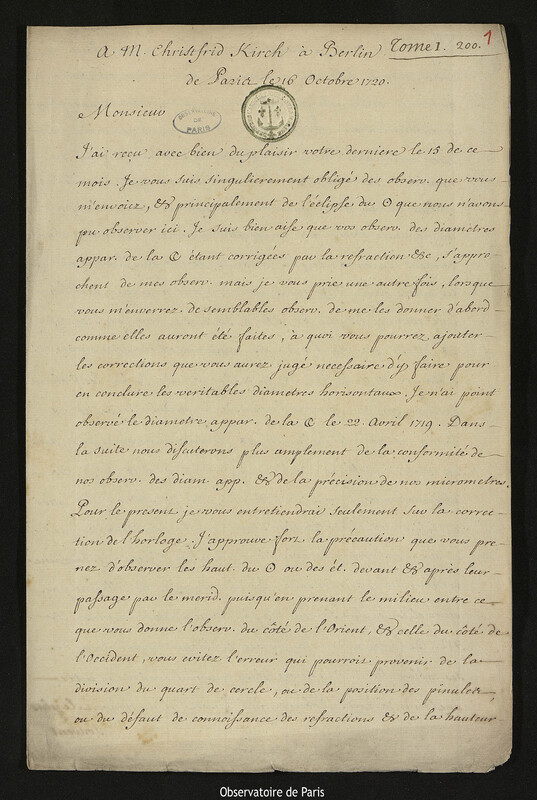 A M. Christfrid Kirch à Berlin Tome I. 200. 1
de Paris le 16 Octobre 1720.
Monsieur
OBSERVATOIRE DE PARIS
J'ai reçu avec bien du plaisir votre derniere le 15 de ce
mois. Je vous suis singulierement obligé des observ. que vous
m'envoiez, & principalement de l'éclipse du ☉ que nous n'avons
pu observer ici. Je suis bien aise que vos observ. des diametres
appar. de la ☾ étant corrigées par la refraction &c, s'appro-
chent de mes observ. mais je vous prie une autre fois, lorsque
vous m'enverrez de semblables observ. de me les donner d'abord
comme elles auront été faites, à quoi vous pourrez ajouter
les corrections que vous aurez jugé necessaire d'y faire pour
en conclure les veritables diametres horisontaux. Je n'ai point
observé le diametre appar. de la ☾ le 22 Avril 1719. Dans
la suite nous discuterons plus amplement de la conformité de
nos observ. des diam. app. & de la précision de nos micrometres.
Pour le present je vous entretiendrai seulement sur la correc-
tion de l'horloge. J'approuve fort la précaution que vous pre-
nez d'observer les haut. du ☉ ou des ét. devant & après leur
passage par le merid. puisqu'en prenant le milieu entre ce
que vous donne l'observ. du côté de l'Orient, & celle du côté de
l'Occident, vous evitez l'erreur qui pourroit provenir de la
division du quart de cercle, ou de la position des pinules,
ou du défaut de connoissance des refractions & de la hauteur
Observatoire de Paris